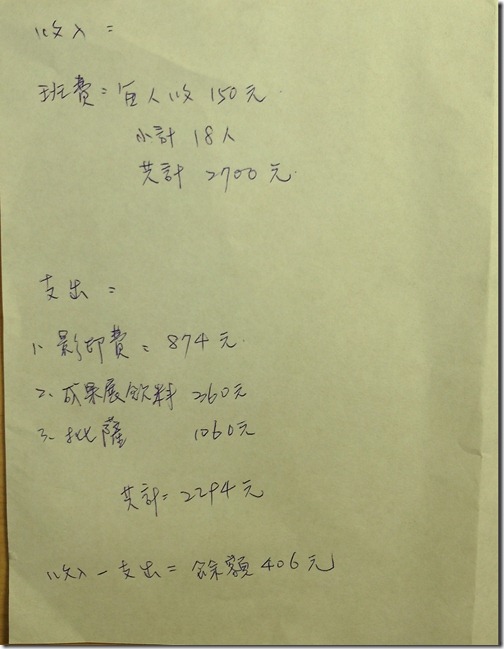 收入：
班費：每人收 150元.
小計 18人
共計 2700元.
支出：
1、影印費：874元.
2、成果展飲料 360元
3、批薩 1060元
共計：2294元
收入－支出＝餘額 406元